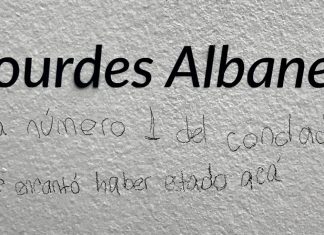 ourdes Albane
a número 1 del condad
e encantó haber estado acá